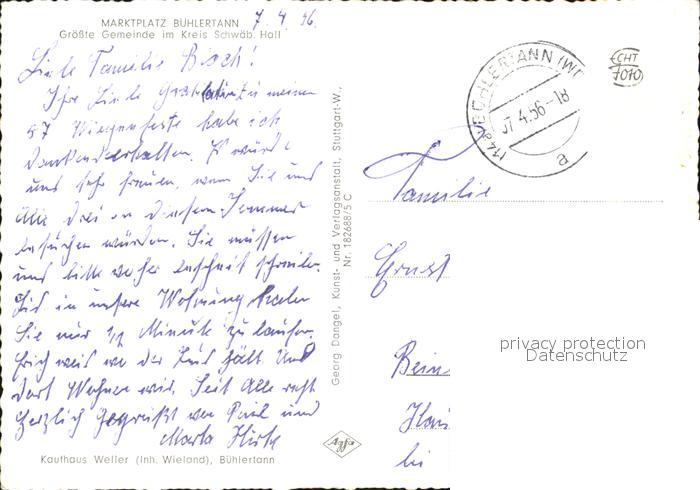 MARKTPLATZ BÜHLERTANN
Größte Gemeinde im Kreis Schwäb. Hall
7. 4 56.
Liebe Familie Bisch!
Ihre Liebe Gratulation zu meinem
57 Wiegenfeste habe ich
dankend erhalten. Es würde
uns sehr freuen, wenn Sie und
Alle drei in diesem Sommer
besuchen würden. Sie müssen
uns bitte vorher bescheit schreiben.
Bis in unsere Wohnung haben
Sie nur 1/2 Minute zu laufen.
Erich weis wo der Bus hält Und
dort Wohnen wir. Seit Alle recht
Herzlich Gegrüßt von Paul und
Marta
Kaufhaus Weller (Inh. Wieland), Bühlertann
Georg Dangel, Kunst- und Verlagsanstalt, Stuttgart-W.,
Nr. 182688/5 C
Agfa
(14a) BÜHLERTANN (WÜ
07.4.56-18
a
ECHT
7010
Familie
Ernst
Bein
Hau
bei
privacy protection
Datenschutz